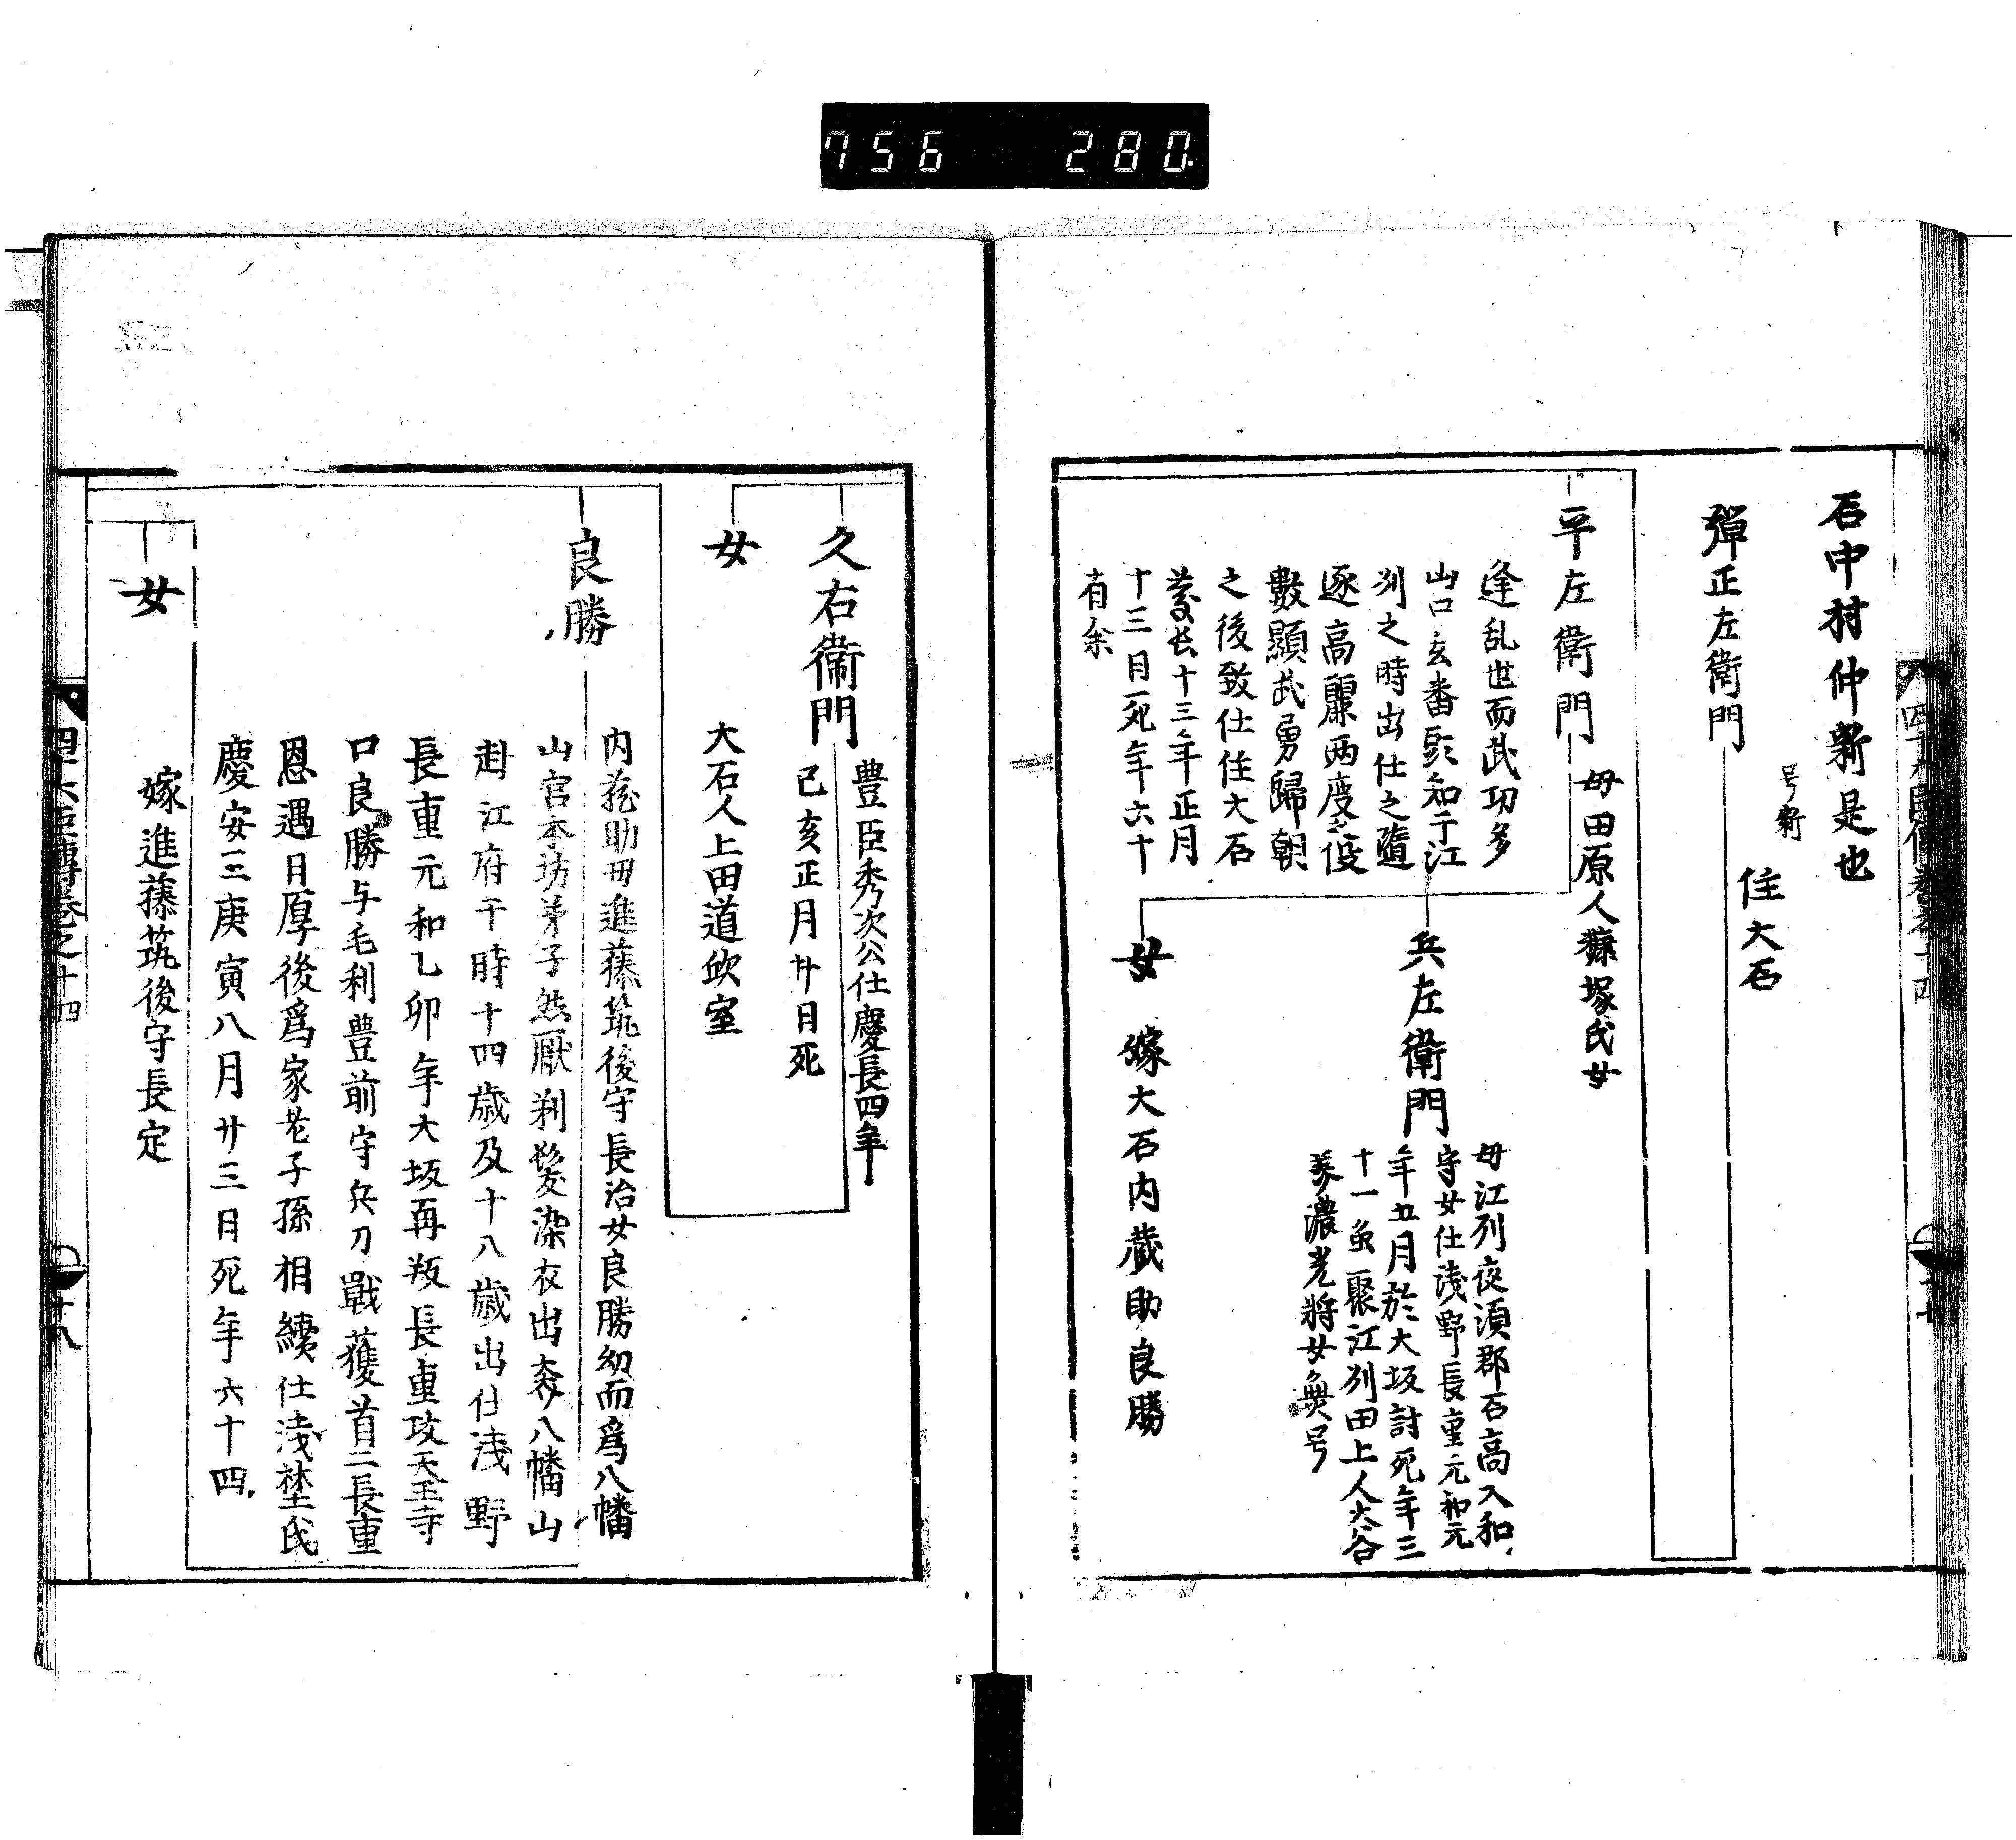 756 280.
石中村仲新是也
号新
彈正左衛門
住大石
平左衛門
母田原人糠塚氏女
逢乱世而武功多
山口玄番頭知于江
列之時出仕之隨
逐高麗两度役
數顯武勇歸朝
之後致仕住大石
慶长十三年正月
十三月死年六十
有余
兵左衛門
母江列夜須郡石高入和
守女仕淺野長重元和元
年五月於大坂討死年三
十一室聚江列田上人大谷
美濃光將女無号
女
嫁大石内蔵助良勝
久右衛門
豊臣秀次公仕慶長四年
己亥正月廿日死
女
大石人上田道欣室
良勝
内蔵助母進藤筑後守長治女良勝幼而爲八幡
山宮本坊弟子然厭剃髮染衣出奔八幡山
赴江府于時十四歳及十八歳出仕淺野
長重元和乙卯年大坂再叛長重攻天王寺
口良勝与毛利豊前守兵刀戰獲首二長重
恩遇日厚後爲家老子孫相續仕淺埜氏
慶安三庚寅八月廿三日死年六十四
女
嫁進藤筑後守長定
四十六臣傳卷之十四
十八